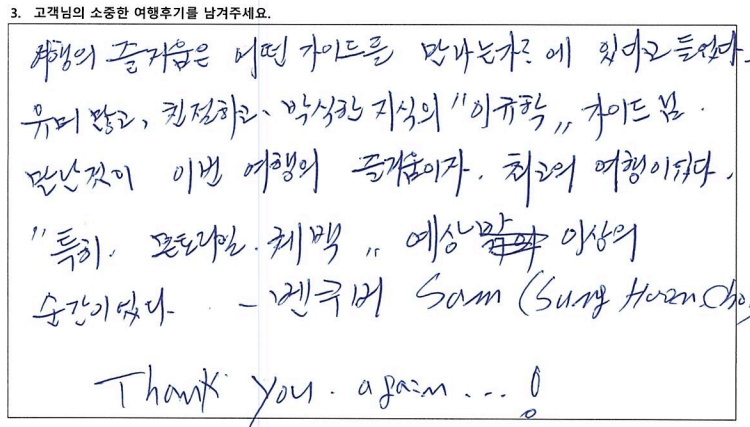 3. 고객님의 소중한 여행후기를 남겨주세요.
여행의 즐거움은 어떤 가이드를 만나는가에 있다고 들었다.
유머 많고, 친절하고, 박식한 지식의 "이규학" 가이드 님.
만난것이 이번 여행의 즐거움이자. 최고의 여행이었다.
"특히. 몬트리얼. 퀘벡" 예상 이상의
순간이었다. - 벤쿠버 Sam (Sung Hoon. Cho
Thank you. again...!